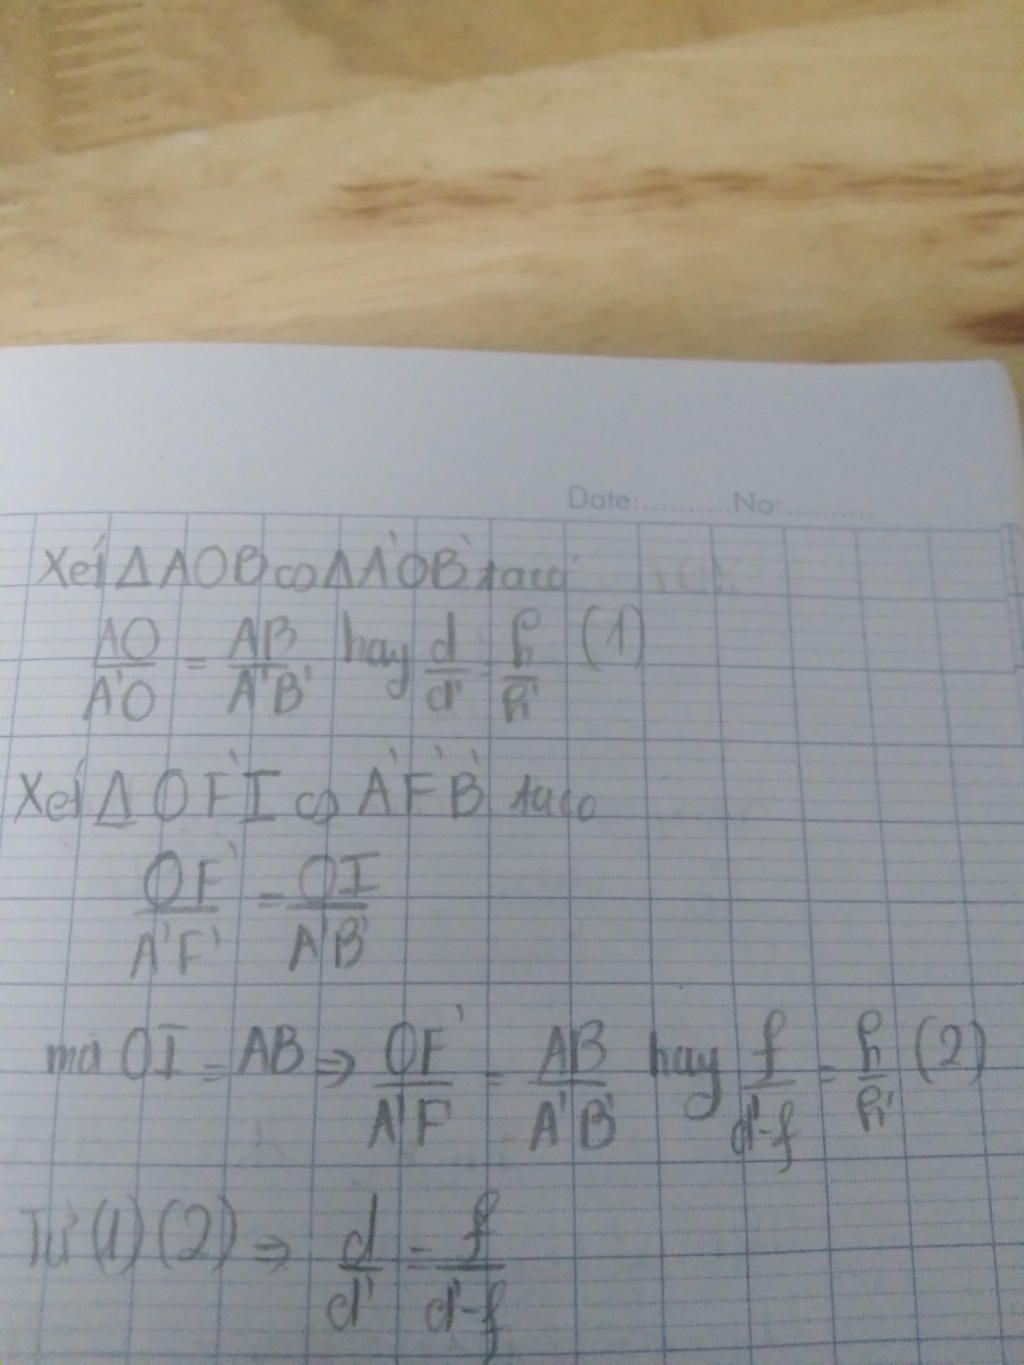 Date:..........No:..........
Xét ΔAOB ∽ ΔA'OB' ta có
AO/A'O = AB/A'B' hay d/d' = h/h' (1)
Xét Δ OF'I ∽ A'F'B' ta co
OF'/A'F' = OI/A'B'
mà OI = AB ⇒ OF'/A'F' = AB/A'B' hay f/d'-f = h/h' (2)
Từ (1) (2) ⇒ d/d' = f/d'-f